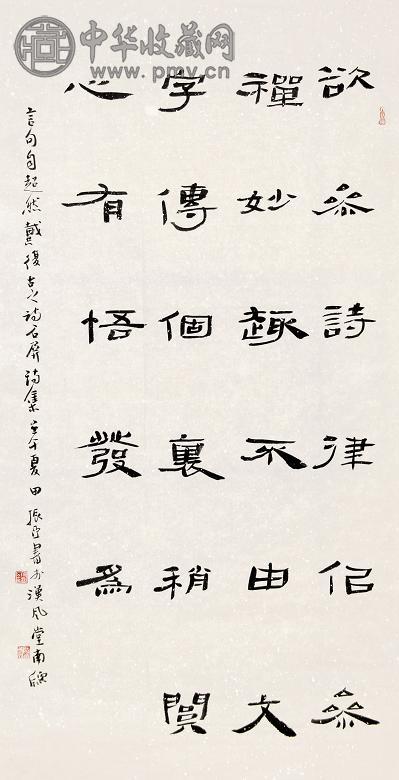 中华收藏网
www.pmv.cn
欲參詩律佀參
禪妙趣不由文
字傳個裏稍關
心有悟發為
言句自超然戴復古之詩石屏詩集壬午夏田振書於漢風堂南牖